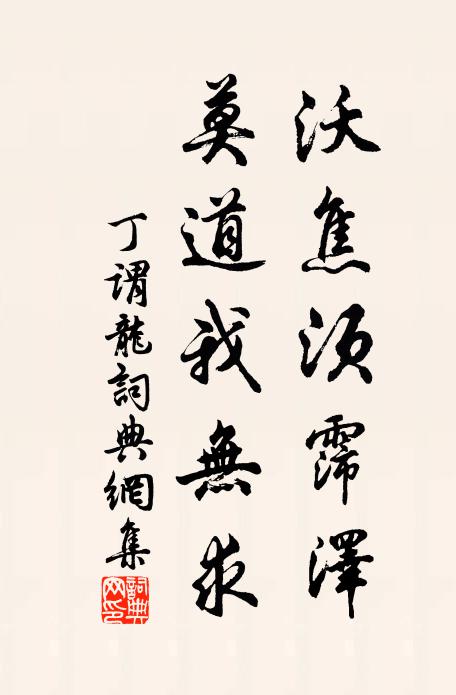 沃焦須霈澤
莫道我無求
丁謂龍詞典網集
詞典網印